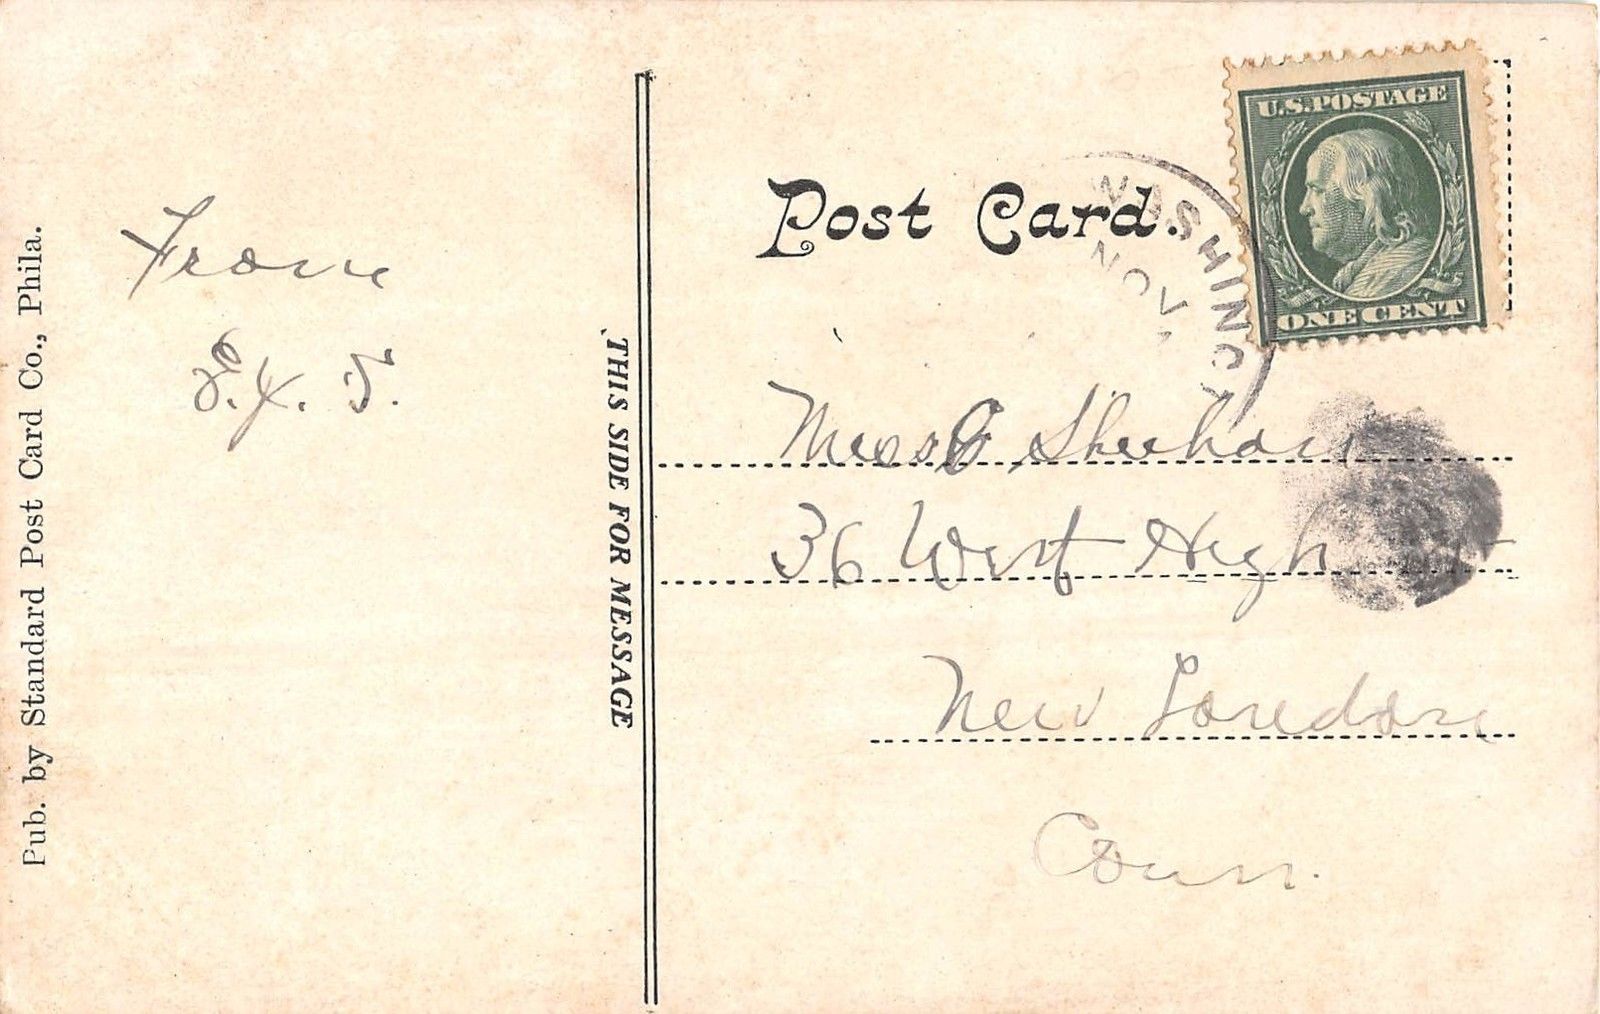 Pub. by Standard Post Card Co., Phila.
From
THIS SIDE FOR MESSAGE
Post Card.
WASHING
NOV
U.S. POSTAGE
ONE CENT
Miss Sheehan
36 West High
New London
Conn.